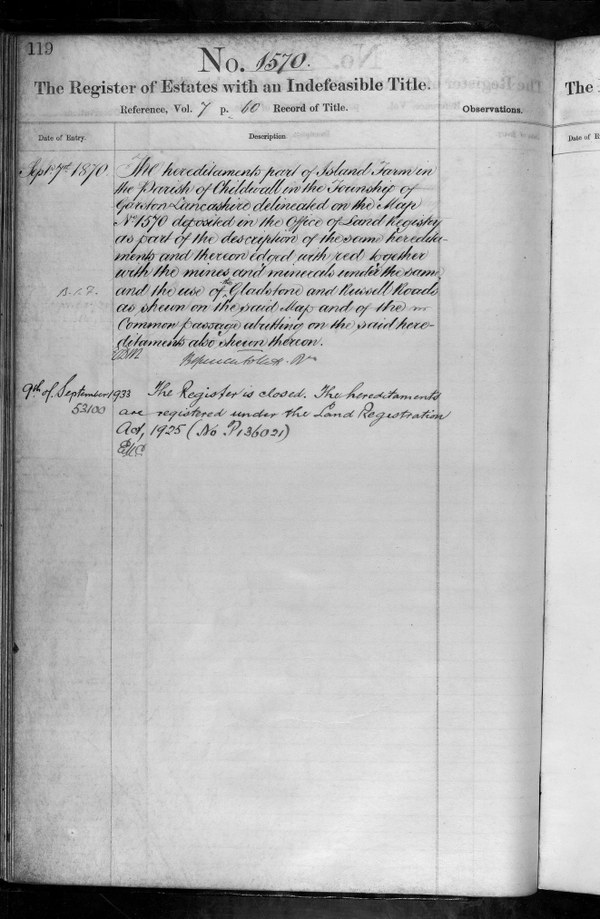 119
No. 1570.
The Register of Estates with an Indefeasible Title.
Reference, Vol. 7 p. 60 Record of Title.
Observations.
Date of Entry.
Description.
Sept. 7th 1870
The hereditaments part of Island Farm in
the Parish of Childwall in the Township of
Garston Lancashire delineated on the Map
No 1570 deposited in the Office of Land Registry
as part of the description of the same heredita-
ments and thereon edged with red together
with the mines and minerals under the same
and the use of the Gladstone and Russell Roads
as shewn on the said Map and of the
Common passage abutting on the said here-
ditaments also shewn thereon.
9th of September 1933
53100
The Register is closed. The hereditaments
are registered under the Land Registration
Act, 1925 (No P136021)
The
Date of E